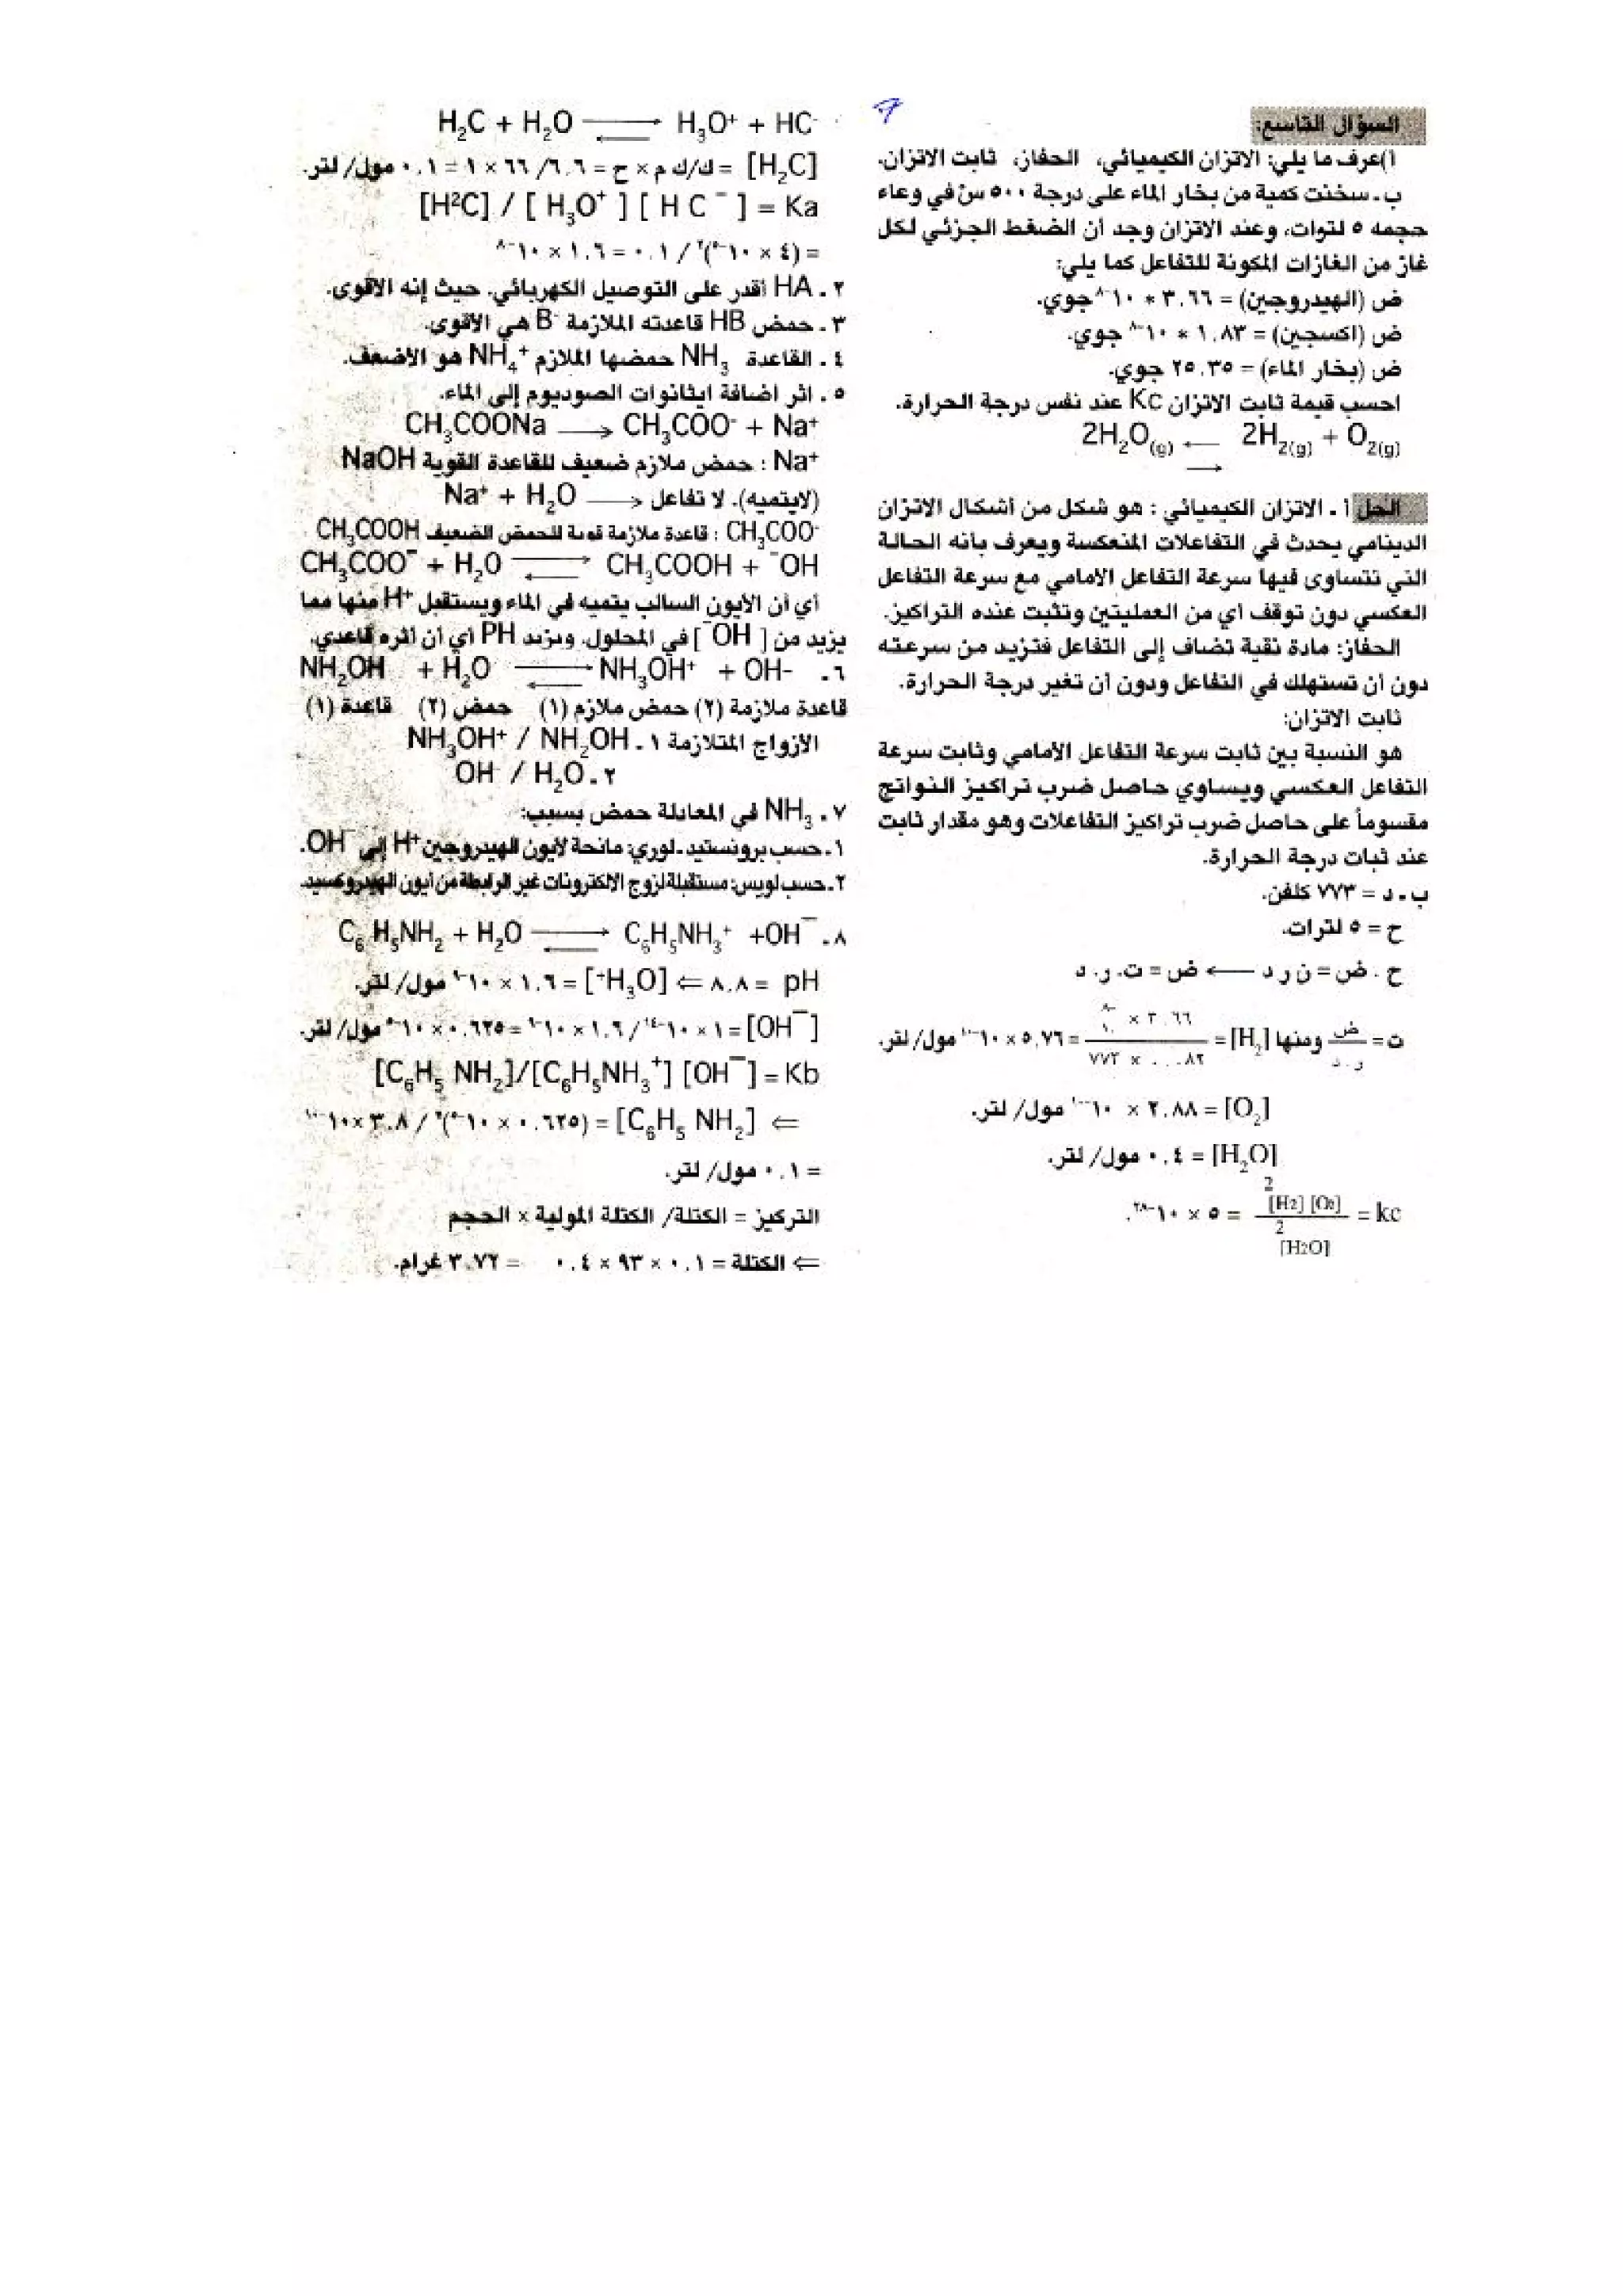 السؤال التاسع:
أ)عرف ما يلي: الاتزان الكيميائي، الحفاز، ثابت الاتزان.
ب ـ سخنت كمية من بخار الماء على درجة ٥٠٠ سْ في وعاء
حجمه ٥ لترات، وعند الاتزان وجد أن الضغط الجزئي لكل
غاز من الغازات المكونة للتفاعل كما يلي:
ض (الهيدروجين) = ٣.٦٦ * ١٠⁻⁸ جوي.
ض (اكسجين) = ١.٨٣ * ١٠⁻⁸ جوي.
ض (بخار الماء) = ٢٥.٣٥ جوي.
احسب قيمة ثابت الاتزان Kc عند نفس درجة الحرارة.
2H₂O(g) ⇌ 2H₂(g) + O₂(g)
الحل أ ـ الاتزان الكيميائي : هو شكل من أشكال الاتزان
الدينامي يحدث في التفاعلات المنعكسة ويعرف بأنه الحالة
التي تتساوى فيها سرعة التفاعل الأمامي مع سرعة التفاعل
العكسي دون توقف أي من العمليتين وتثبت عنده التراكيز.
الحفاز: مادة نقية تضاف إلى التفاعل فتزيد من سرعته
دون أن تستهلك في التفاعل ودون أن تغير درجة الحرارة.
ثابت الاتزان:
هو النسبة بين ثابت سرعة التفاعل الأمامي وثابت سرعة
التفاعل العكسي ويساوي حاصل ضرب تراكيز النواتج
مقسوماً على حاصل ضرب تراكيز التفاعلات وهو مقدار ثابت
عند ثبات درجة الحرارة.
ب ـ د = ٧٧٣ كلفن.
ح = ٥ لترات.
ح . ض = ن ر د ⟵ ض = ت. ر. د
ت = ض / ر . د ومنها [H₂] = ٣.٦٦ × ١٠⁻⁸ / ٠.٠٨٢ × ٧٧٣ = ٥.٧٦ × ١٠⁻¹⁰ مول/ لتر.
[O₂] = ٢.٨٨ × ١٠⁻¹⁰ مول/ لتر.
[H₂O] = ٠.٤ مول/ لتر.
kc = [H2]² [O2] / [H2O]² = ٥ × ١٠⁻²⁸.
H₂C + H₂O ⇌ H₃O⁺ + HC⁻
[H₂C] = ك/ك م × ح = ٦.٦ /٦٦ × ١ = ٠.١ مول/ لتر.
[H²C] / [ H₃O⁺ ] [ H C ⁻ ] = Ka
= (٤ × ١٠⁻⁵)² / ٠.١ = ١.٦ × ١٠⁻⁸
٢ . HA أقدر على التوصيل الكهربائي. حيث إنه الأقوى.
٣ . حمض HB قاعدته الملازمة B⁻ هي الأقوى.
٤ . القاعدة NH₃ حمضها الملازم NH₄⁺ هو الأضعف.
٥ . اثر اضافة ايثانوات الصوديوم إلى الماء.
CH₃COONa ⟶ CH₃COO⁻ + Na⁺
Na⁺ : حمض ملازم ضعيف للقاعدة القوية NaOH
(لايتميه). لا تفاعل Na⁺ + H₂O ⟶
CH₃COO⁻ : قاعدة ملازمة قوية للحمض الضعيف CH₃COOH
CH₃COO⁻ + H₂O ⇌ CH₃COOH + ⁻OH
أي أن الأيون السالب يتميه في الماء ويستقبل H⁺ منها مما
يزيد من [ ⁻OH ] في المحلول. ويزيد PH أي أن أثره قاعدي.
٦ . NH₂OH + H₂O ⇌ NH₃OH⁺ + OH-
قاعدة (١) حمض (٢) حمض ملازم (١) قاعدة ملازمة (٢)
الأزواج المتلازمة ١ . NH₃OH⁺ / NH₂OH
٢ . OH⁻ / H₂O
٧ . NH₃ في المعادلة حمض بسبب:
١. حسب برونستيد ـ لوري: مانحة لأيون الهيدروجين H⁺ إلى OH⁻.
٢. حسب لويس: مستقبلة لزوج الالكترونات غير الرابطة من أيون الهيدروكسيد
٨ . C₆H₅NH₂ + H₂O ⇌ C₆H₅NH₃⁺ + OH⁻
pH = ٨.٨ ⇐ [H₃O⁺] = ١.٦ × ١٠⁻⁹ مول/ لتر.
[OH⁻] = ١ × ١٠⁻¹⁴ / ١.٦ × ١٠⁻⁹ = ٠.٦٢٥ × ١٠⁻⁵ مول/ لتر.
[C₆H₅ NH₂]/[C₆H₅NH₃⁺] [OH⁻] = Kb
⇐ [C₆H₅ NH₂] = (٠.٦٢٥ × ١٠⁻⁵)² / ٣.٨ × ١٠⁻¹⁰
= ٠.١ مول/ لتر.
التركيز = الكتلة/ الكتلة المولية × الحجم
⇐ الكتلة = ٠.١ × ٩٣ × ٠.٤ = ٣.٧٢ غرام.